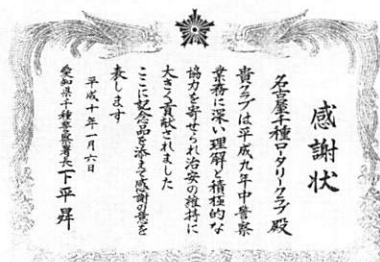 感謝状
名古屋千種ロータリークラブ殿
貴クラブは平成九年中警察
業務に深い理解と積極的な
協力を寄せられ治安の維持に
大きく貢献されました
ここに記念品を添えて感謝の意を
表します
平成十年一月六日
愛知県千種警察署長下平昇